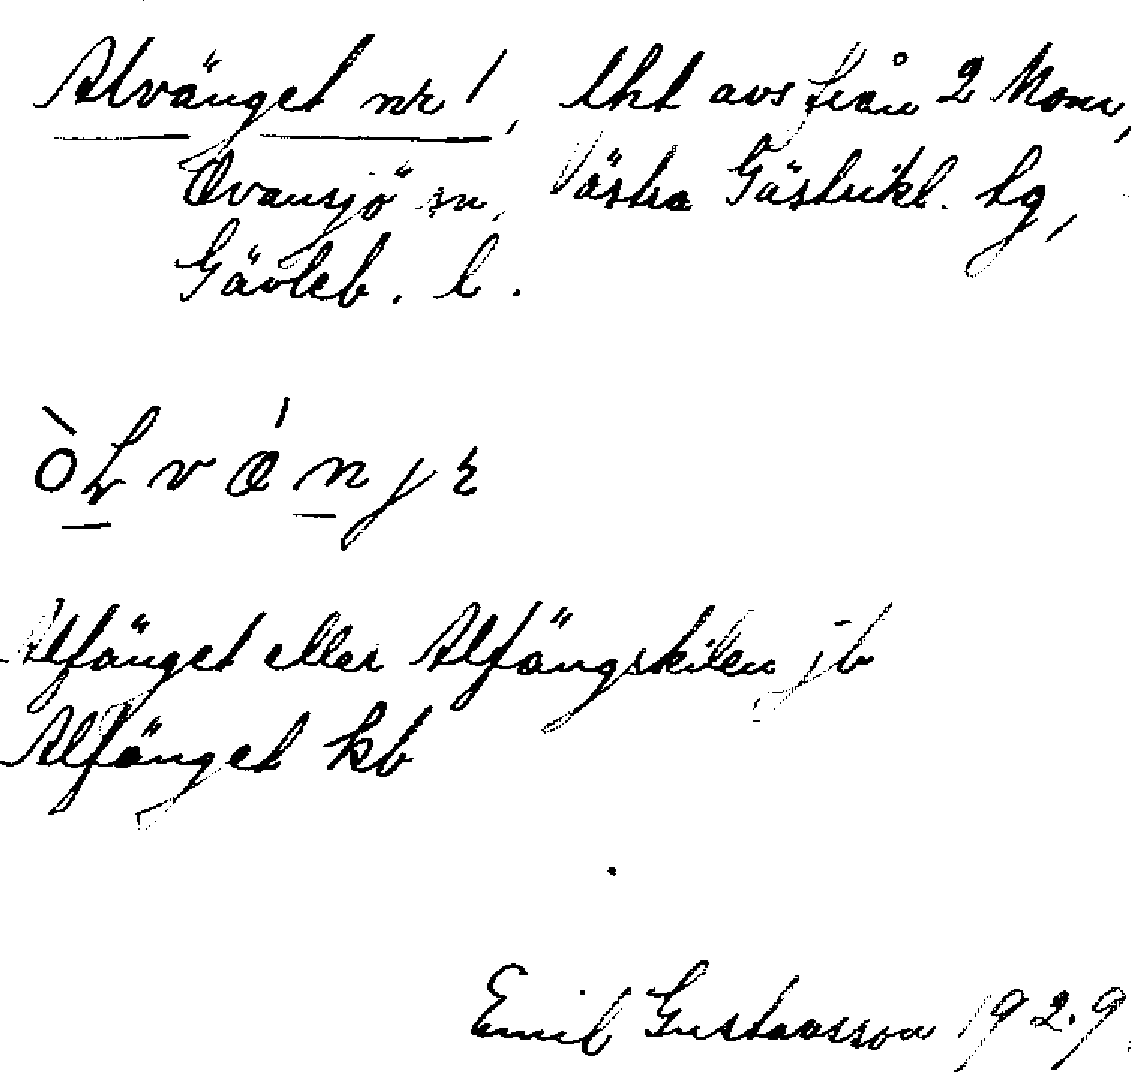 Alvänget nr 1, lht avs från 2 Mom,
Ovansjö sn, Västra Gästrikl. tg,
Gävleb. l.
òLvǽnjɛ
Alfänget eller Alfängskilen jb
Alfänget kb
Emil Gustavsson 1929.